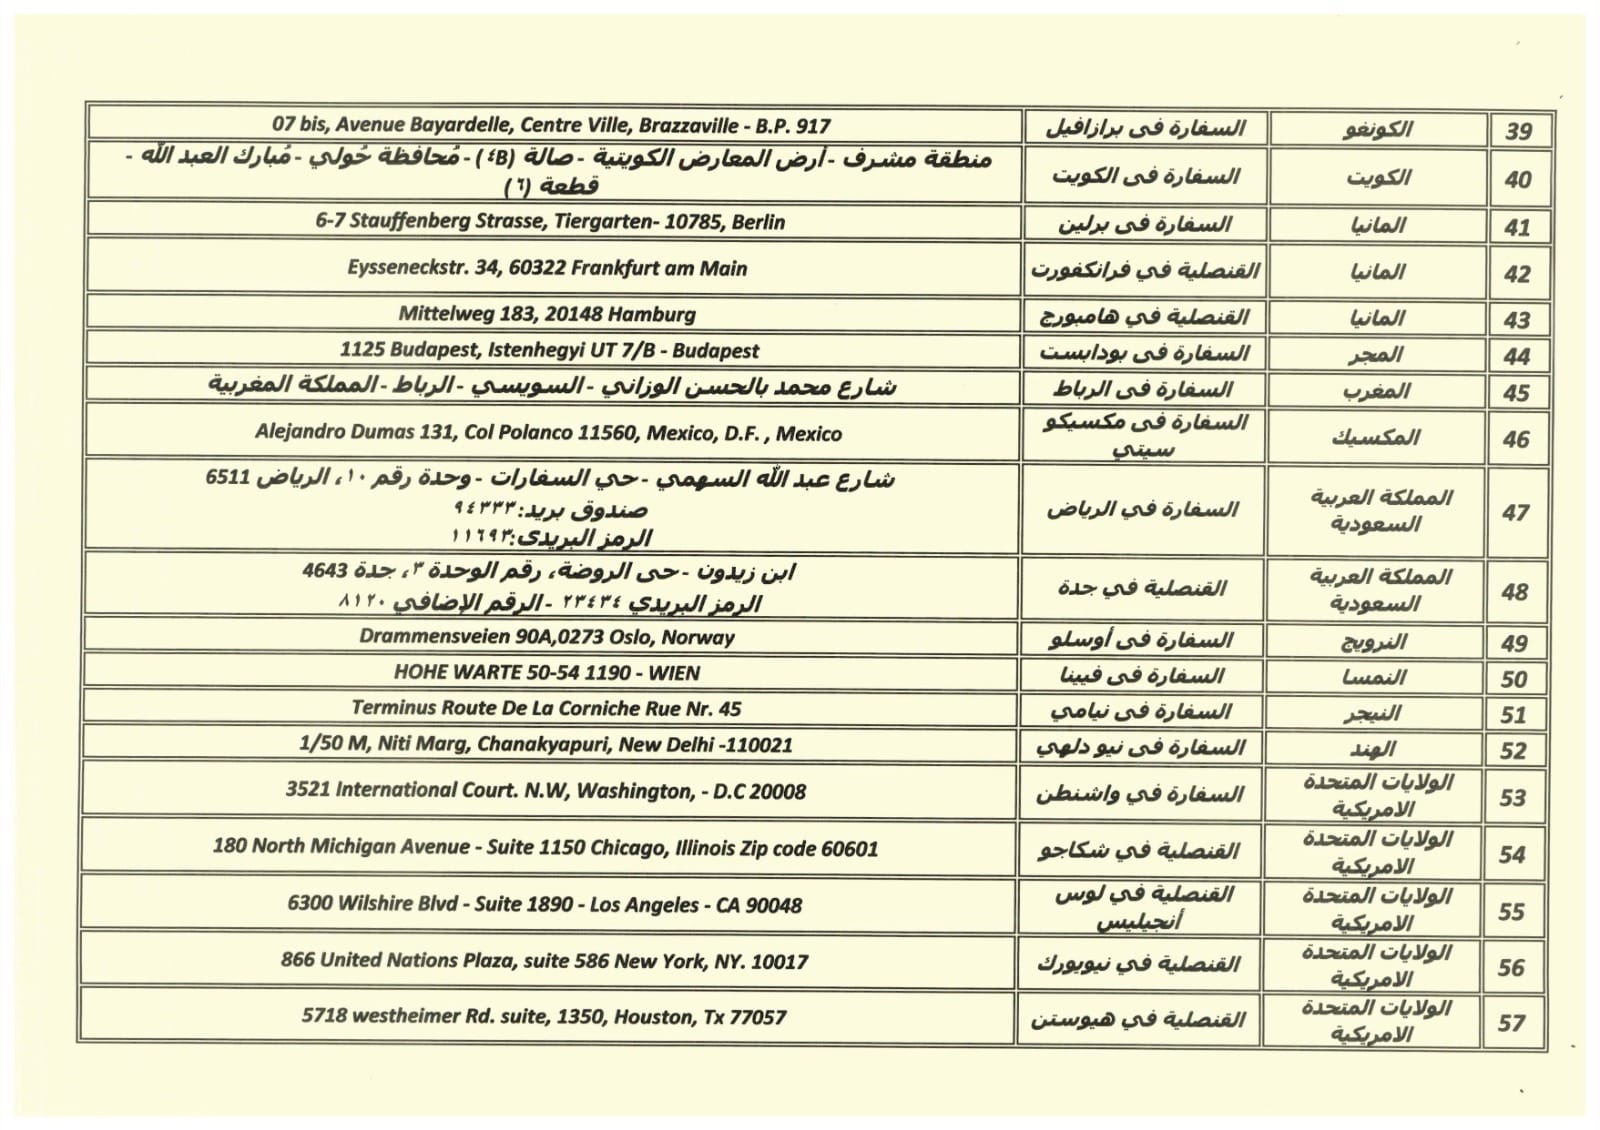 39 الكونغو السفارة فى برازافيل 07 bis, Avenue Bayardelle, Centre Ville, Brazzaville - B.P. 917
40 الكويت السفارة فى الكويت منطقة مشرف - أرض المعارض الكويتية - صالة (٤B) - مُحافظة حُولي - مُبارك العبد الله -
قطعة (٦)
41 المانيا السفارة فى برلين 6-7 Stauffenberg Strasse, Tiergarten- 10785, Berlin
42 المانيا القنصلية في فرانكفورت Eysseneckstr. 34, 60322 Frankfurt am Main
43 المانيا القنصلية في هامبورج Mittelweg 183, 20148 Hamburg
44 المجر السفارة فى بودابست 1125 Budapest, Istenhegyi UT 7/B - Budapest
45 المغرب السفارة فى الرباط شارع محمد بالحسن الوزاني - السويسي - الرباط - المملكة المغربية
46 المكسيك السفارة فى مكسيكو
سيتي Alejandro Dumas 131, Col Polanco 11560, Mexico, D.F. , Mexico
47 المملكة العربية
السعودية السفارة في الرياض شارع عبد الله السهمي - حي السفارات - وحدة رقم ١٠، الرياض 6511
صندوق بريد: ٩٤٣٣٣
الرمز البريدى:١١٦٩٣
48 المملكة العربية
السعودية القنصلية في جدة ابن زيدون - حى الروضة، رقم الوحدة ٣، جدة 4643
الرمز البريدي ٢٣٤٣٤ - الرقم الإضافي ٨١٢٠
49 النرويج السفارة فى أوسلو Drammensveien 90A,0273 Oslo, Norway
50 النمسا السفارة فى فيينا HOHE WARTE 50-54 1190 - WIEN
51 النيجر السفارة فى نيامي Terminus Route De La Corniche Rue Nr. 45
52 الهند السفارة فى نيو دلهي 1/50 M, Niti Marg, Chanakyapuri, New Delhi -110021
53 الولايات المتحدة
الامريكية السفارة في واشنطن 3521 International Court. N.W, Washington, - D.C 20008
54 الولايات المتحدة
الامريكية القنصلية في شكاجو 180 North Michigan Avenue - Suite 1150 Chicago, Illinois Zip code 60601
55 الولايات المتحدة
الامريكية القنصلية في لوس
أنجيليس 6300 Wilshire Blvd - Suite 1890 - Los Angeles - CA 90048
56 الولايات المتحدة
الامريكية القنصلية في نيويورك 866 United Nations Plaza, suite 586 New York, NY. 10017
57 الولايات المتحدة
الامريكية القنصلية في هيوستن 5718 westheimer Rd. suite, 1350, Houston, Tx 77057